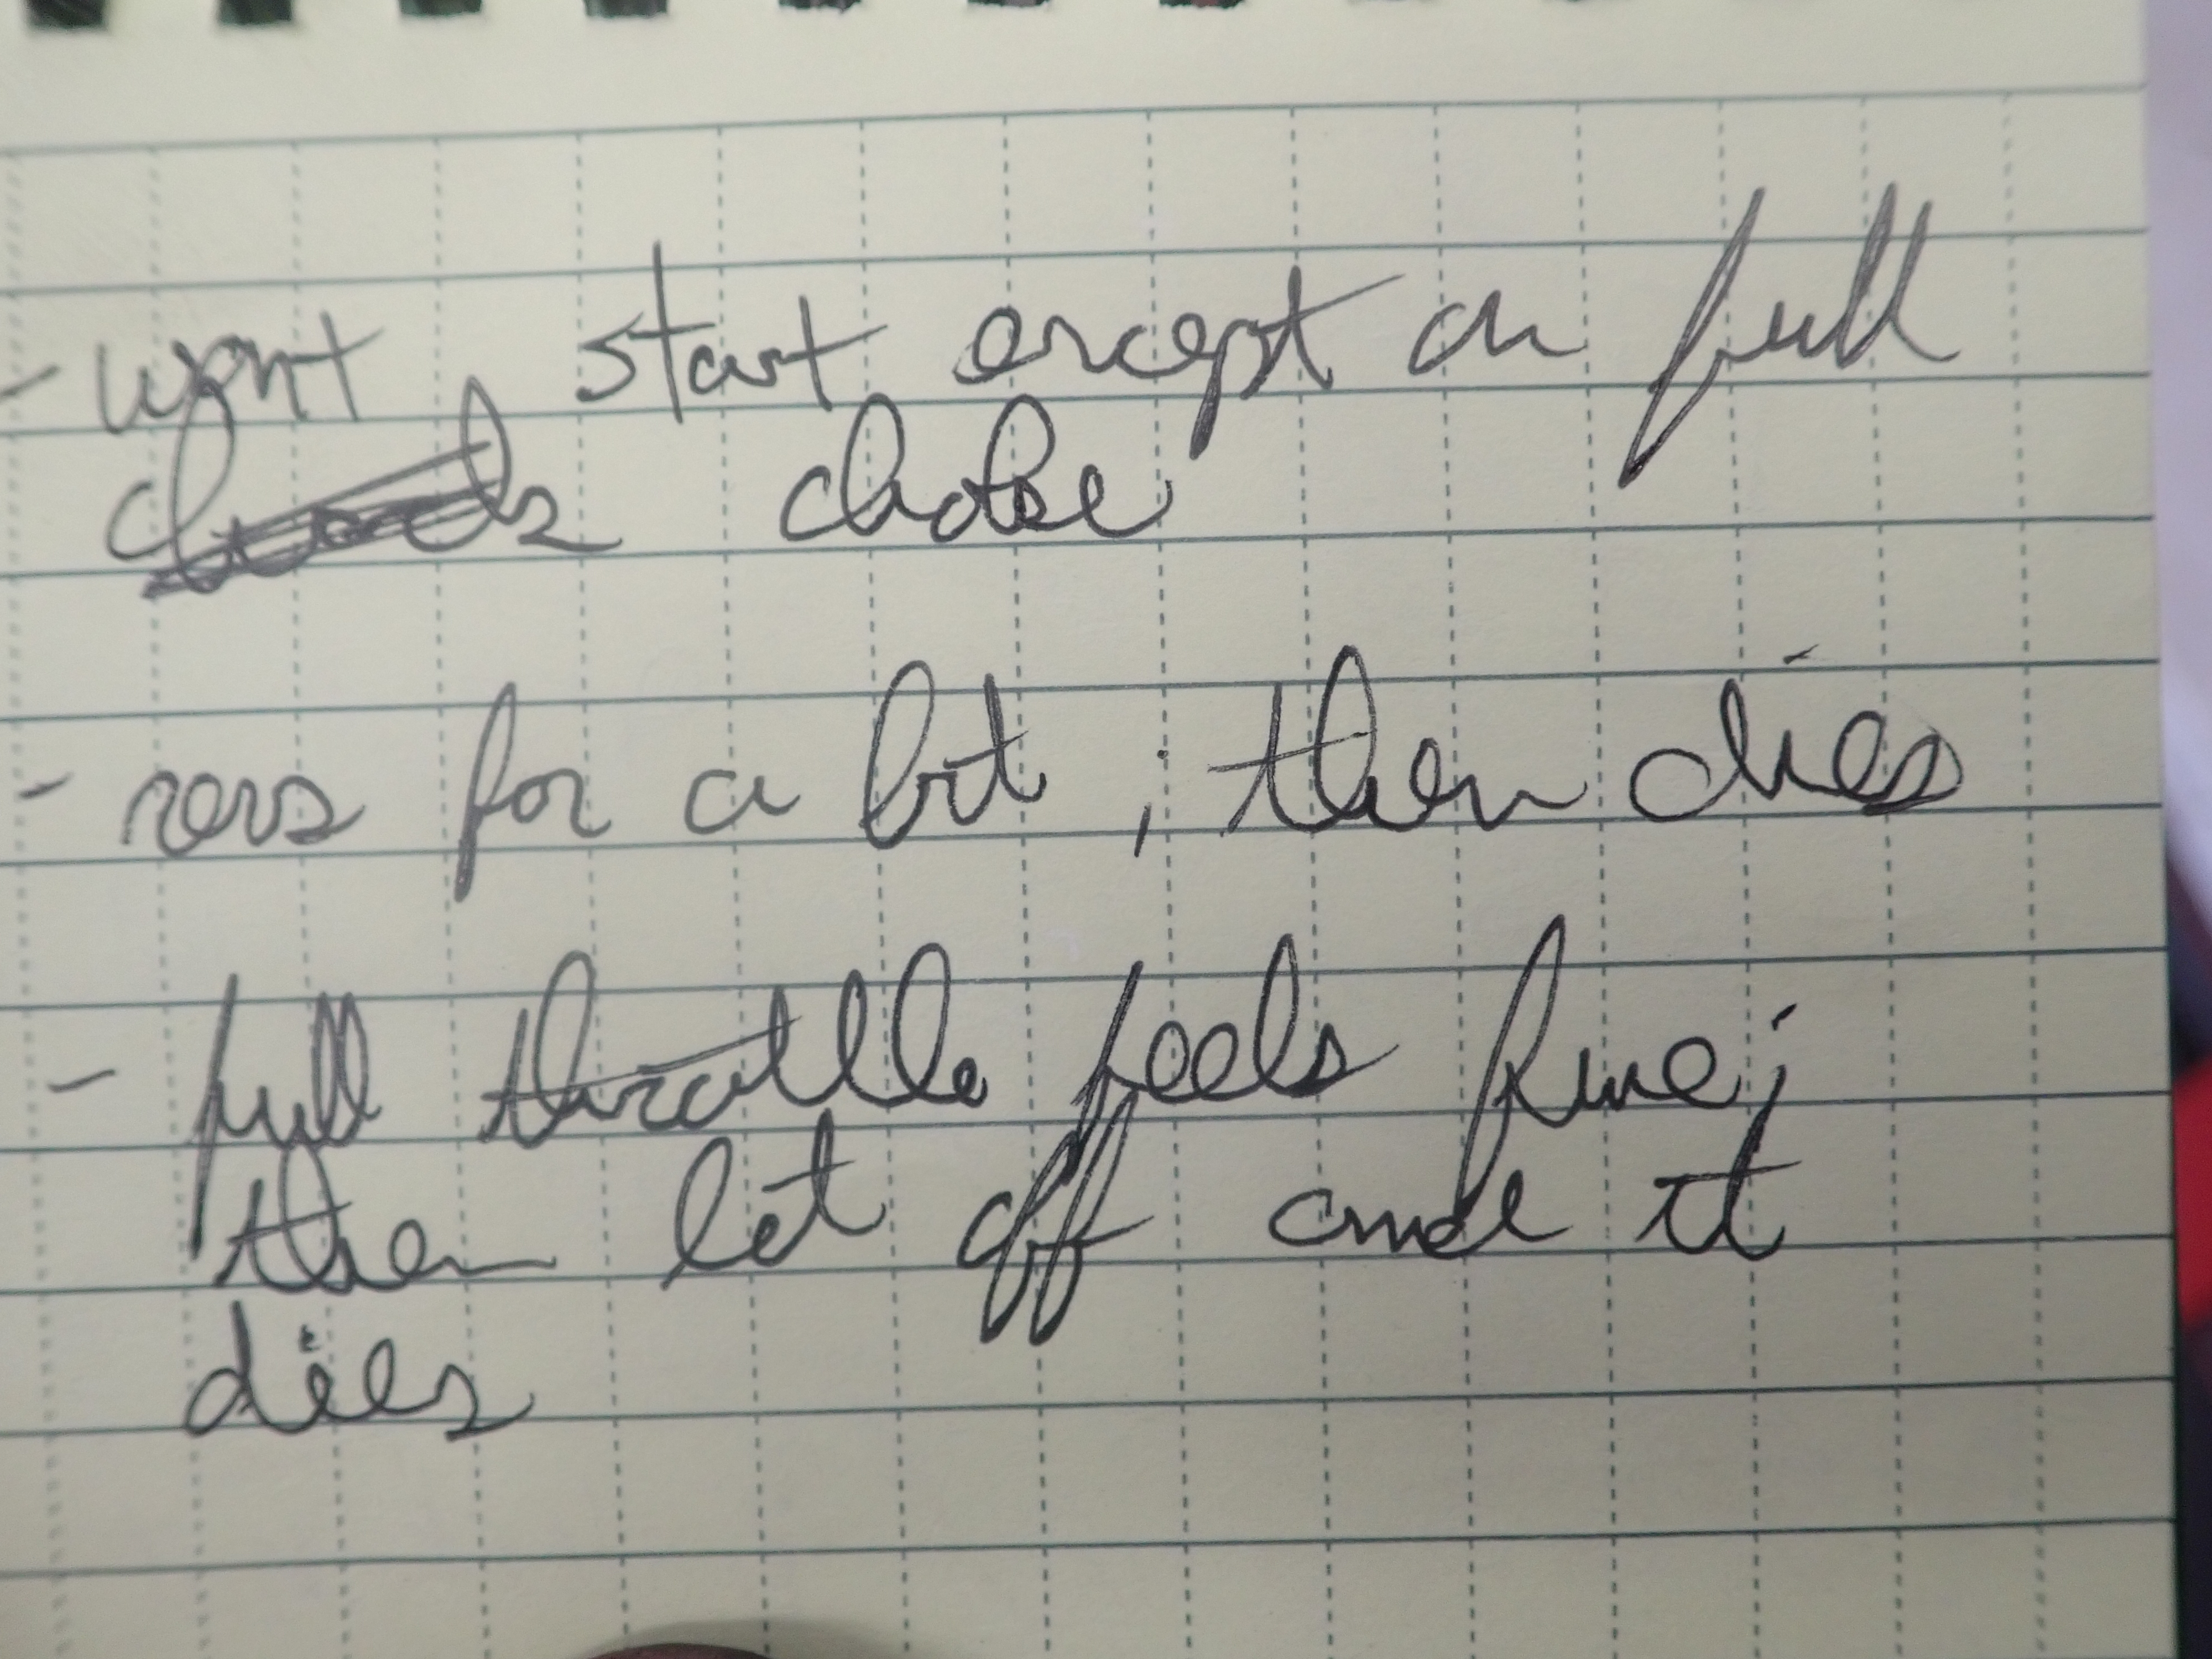 - wont start except on full
choke
- revs for a bit ; then dies
- full throttle feels fine;
then let off and it
dies